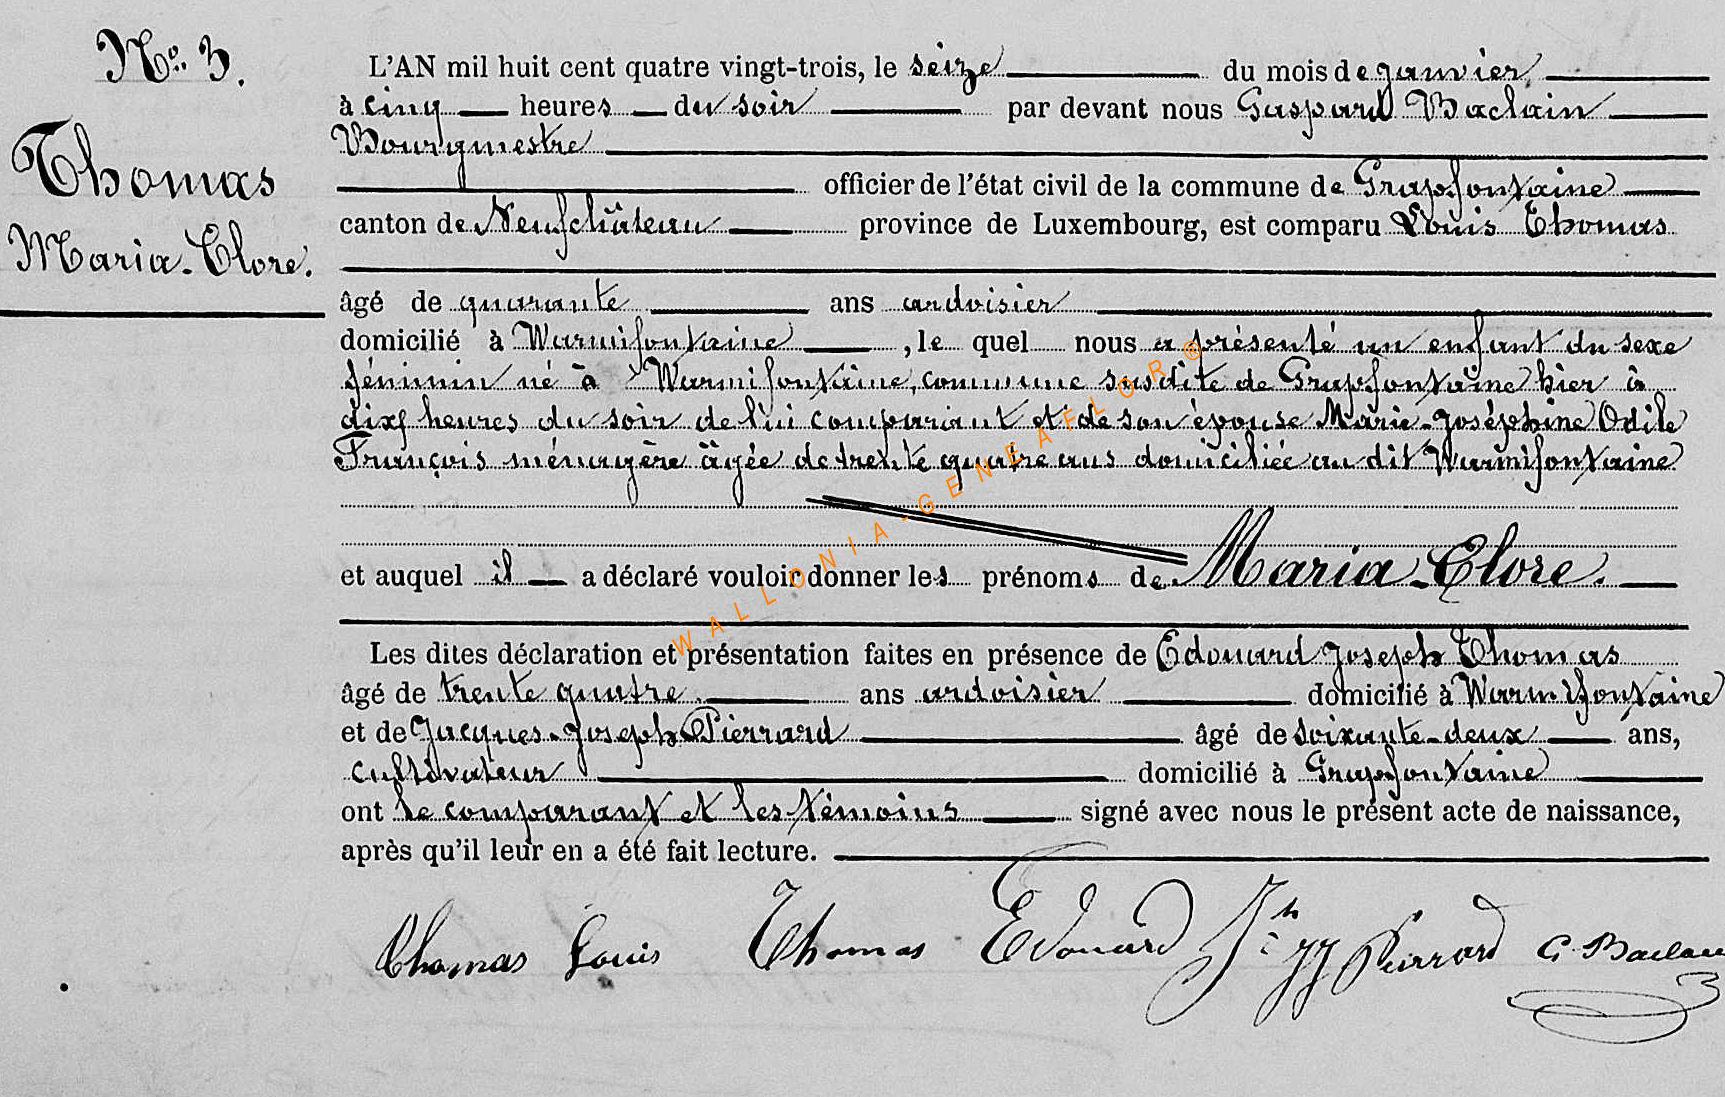 No. 3.
Thomas
Maria-Clore.
L'AN mil huit cent quatre vingt-trois, le seize du mois de janvier
à cinq heures du soir par devant nous Gaspard Baclain
Bourgmestre
officier de l'état civil de la commune de Grapfontaine
canton de Neufchâteau province de Luxembourg, est comparu Louis Thomas
âgé de quarante ans ardoisier
domicilié à Warmifontaine, le quel nous a présenté un enfant du sexe
féminin né à Warmifontaine, commune susdite de Grapfontaine hier à
dix heures du soir de lui comparant et de son épouse Marie-Joséphine Odile
François ménagère âgée de trente quatre ans domiciliée au dit Warmifontaine
et auquel il a déclaré vouloir donner les prénoms de Maria-Clore.
Les dites déclaration et présentation faites en présence de Edouard Joseph Thomas
âgé de trente quatre ans ardoisier domicilié à Warmifontaine
et de Jacques-Joseph Pierrard âgé de soixante-deux ans,
cultivateur domicilié à Grapfontaine
ont le comparant et les témoins signé avec nous le présent acte de naissance,
après qu'il leur en a été fait lecture.
Thomas Louis Thomas Edouard Jh Pierrard G. Baclain
WALLONIA-GENEAFLOR®